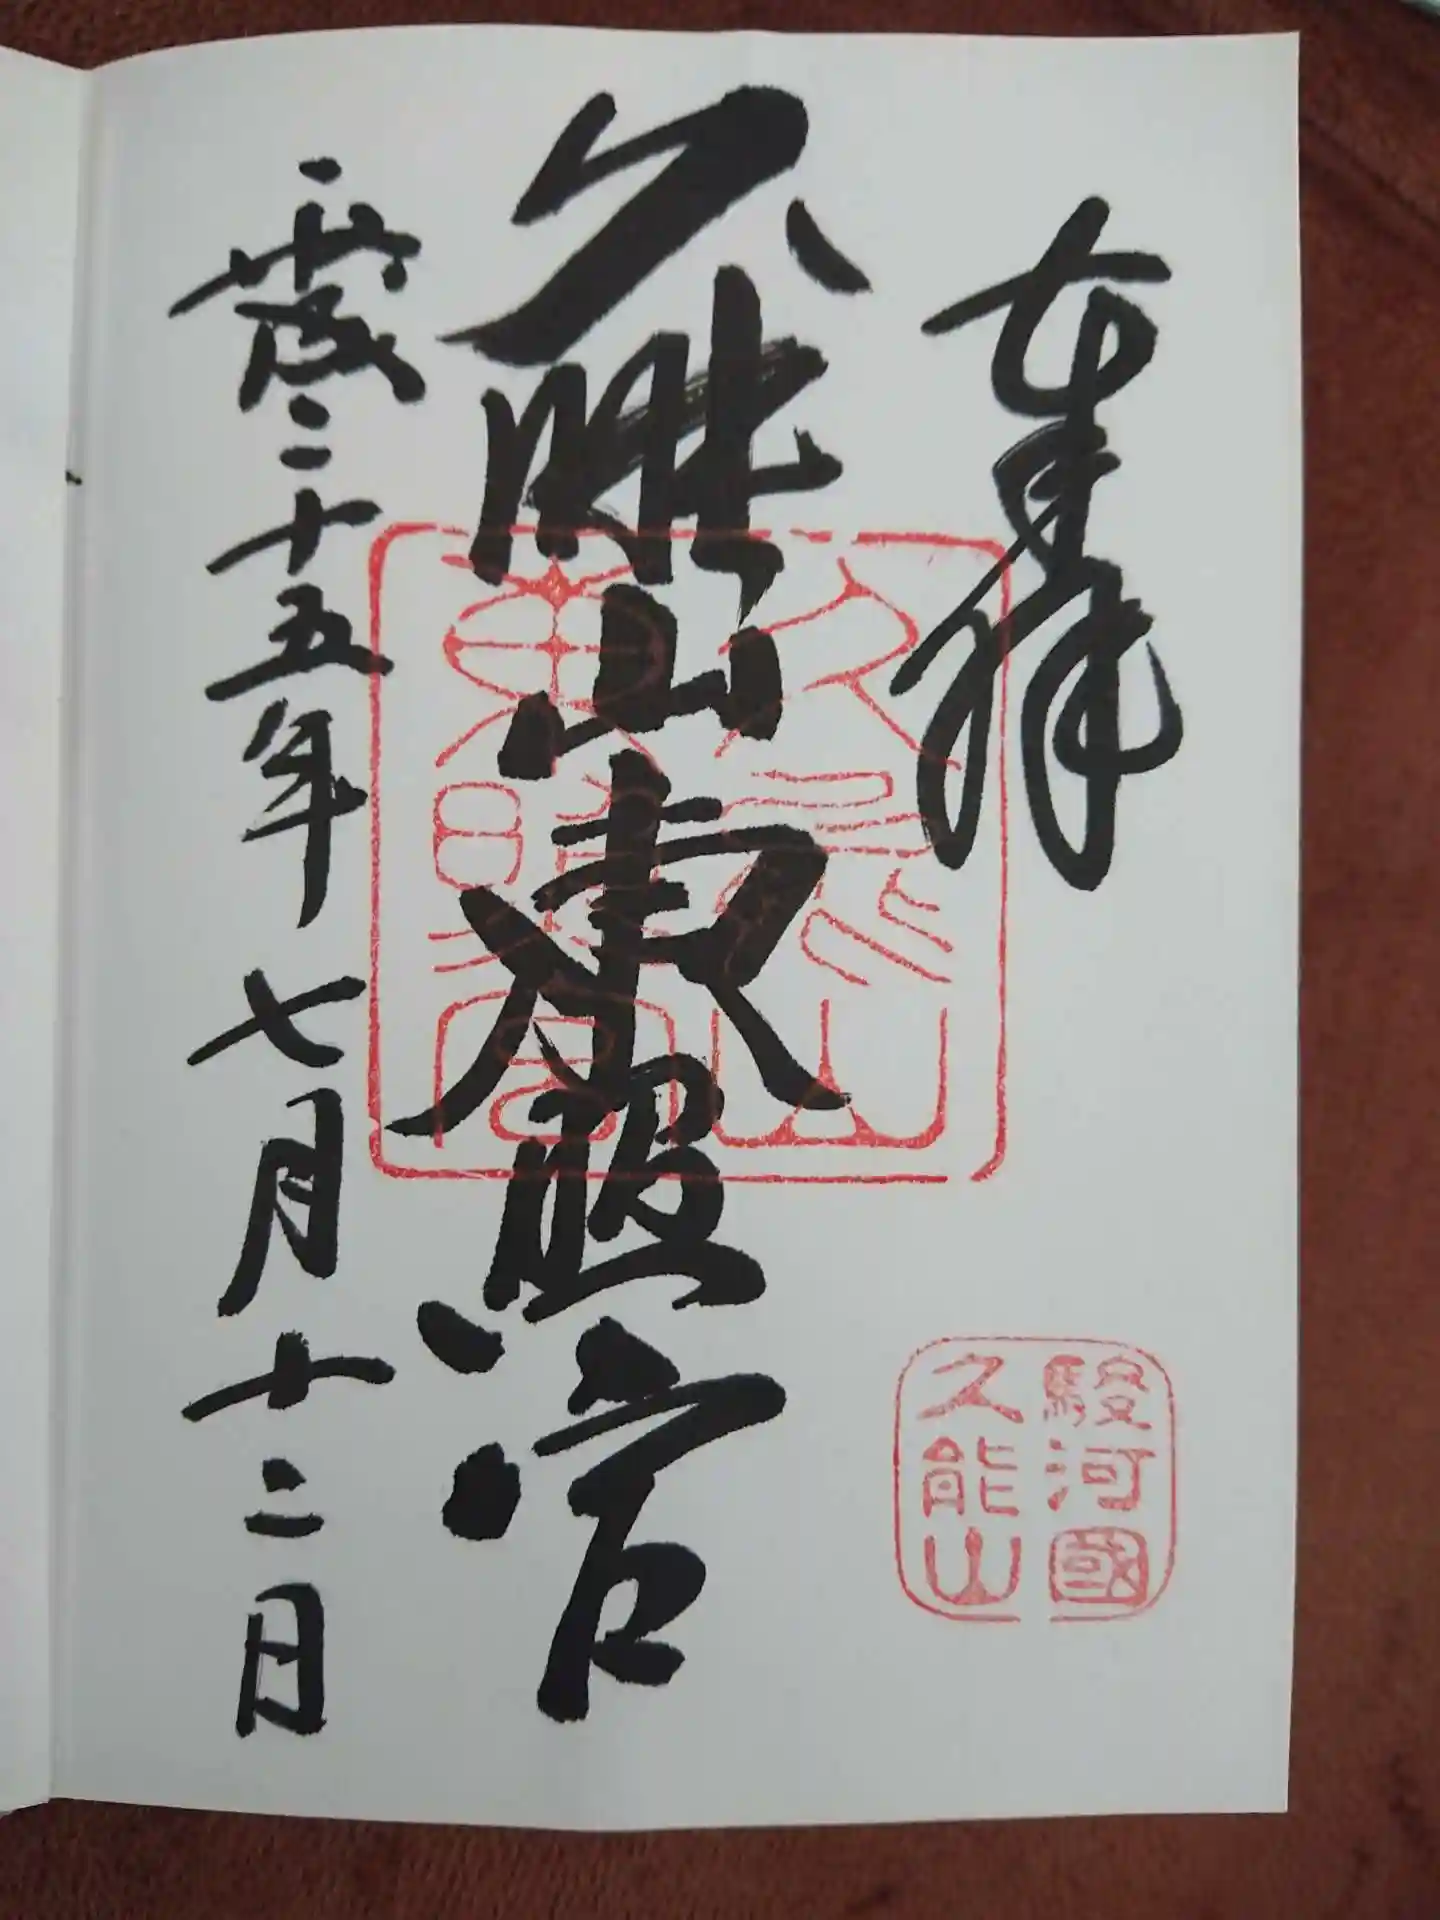 奉拝
駿河國
久能山
久能山東照宮
久能山
東照宮
平成二十五年七月十二日